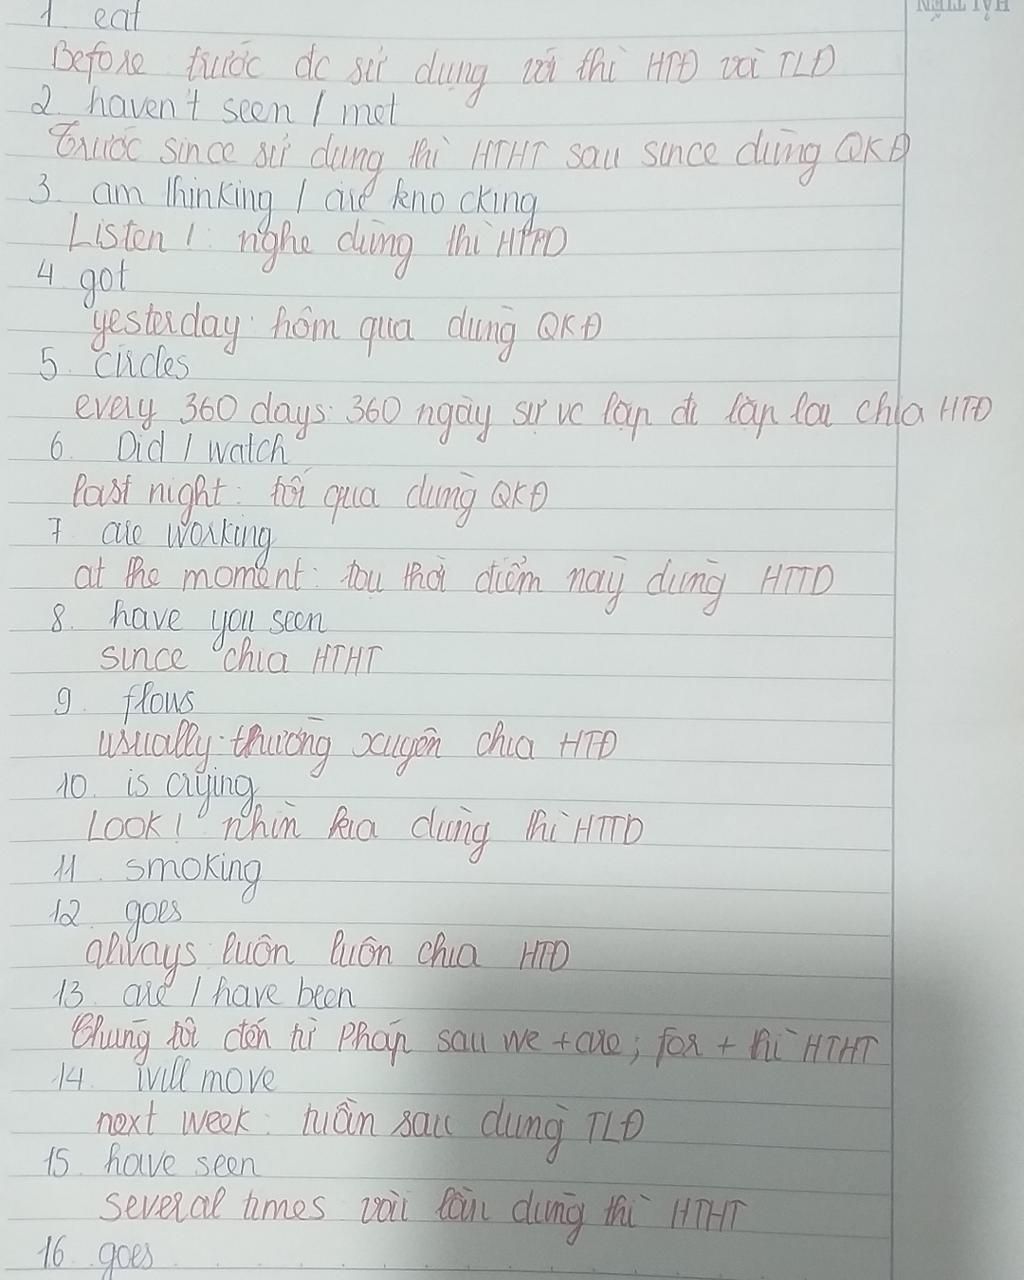 HẢI TIẾN
1 eat
Before trước đc sử dụng với thì HTĐ và TLĐ
2 haven't seen / met
Trước since sử dụng thì HTHT sau since dùng QKĐ
3. am thinking / are knocking
Listen! : nghe dùng thì HTTD
4 got
yesterday: hôm qua dùng QKĐ
5. circles
every 360 days: 360 ngày sự vc lặp đi lặp lại chia HTĐ
6. Did / watch
last night: tối qua dùng QKĐ
7 are working
at the moment: tại thời điểm này dùng HTTD
8. have you seen
since chia HTHT
9. flows
usually: thường xuyên chia HTĐ
10. is crying
Look! nhìn kìa dùng thì HTTD
11. smoking
12. goes
always luôn luôn chia HTĐ
13. are / have been
Chúng tôi đến từ Pháp sau we + are; for + thì HTHT
14. will move
next week: tuần sau dùng TLĐ
15. have seen
several times vài lần dùng thì HTHT
16. goes